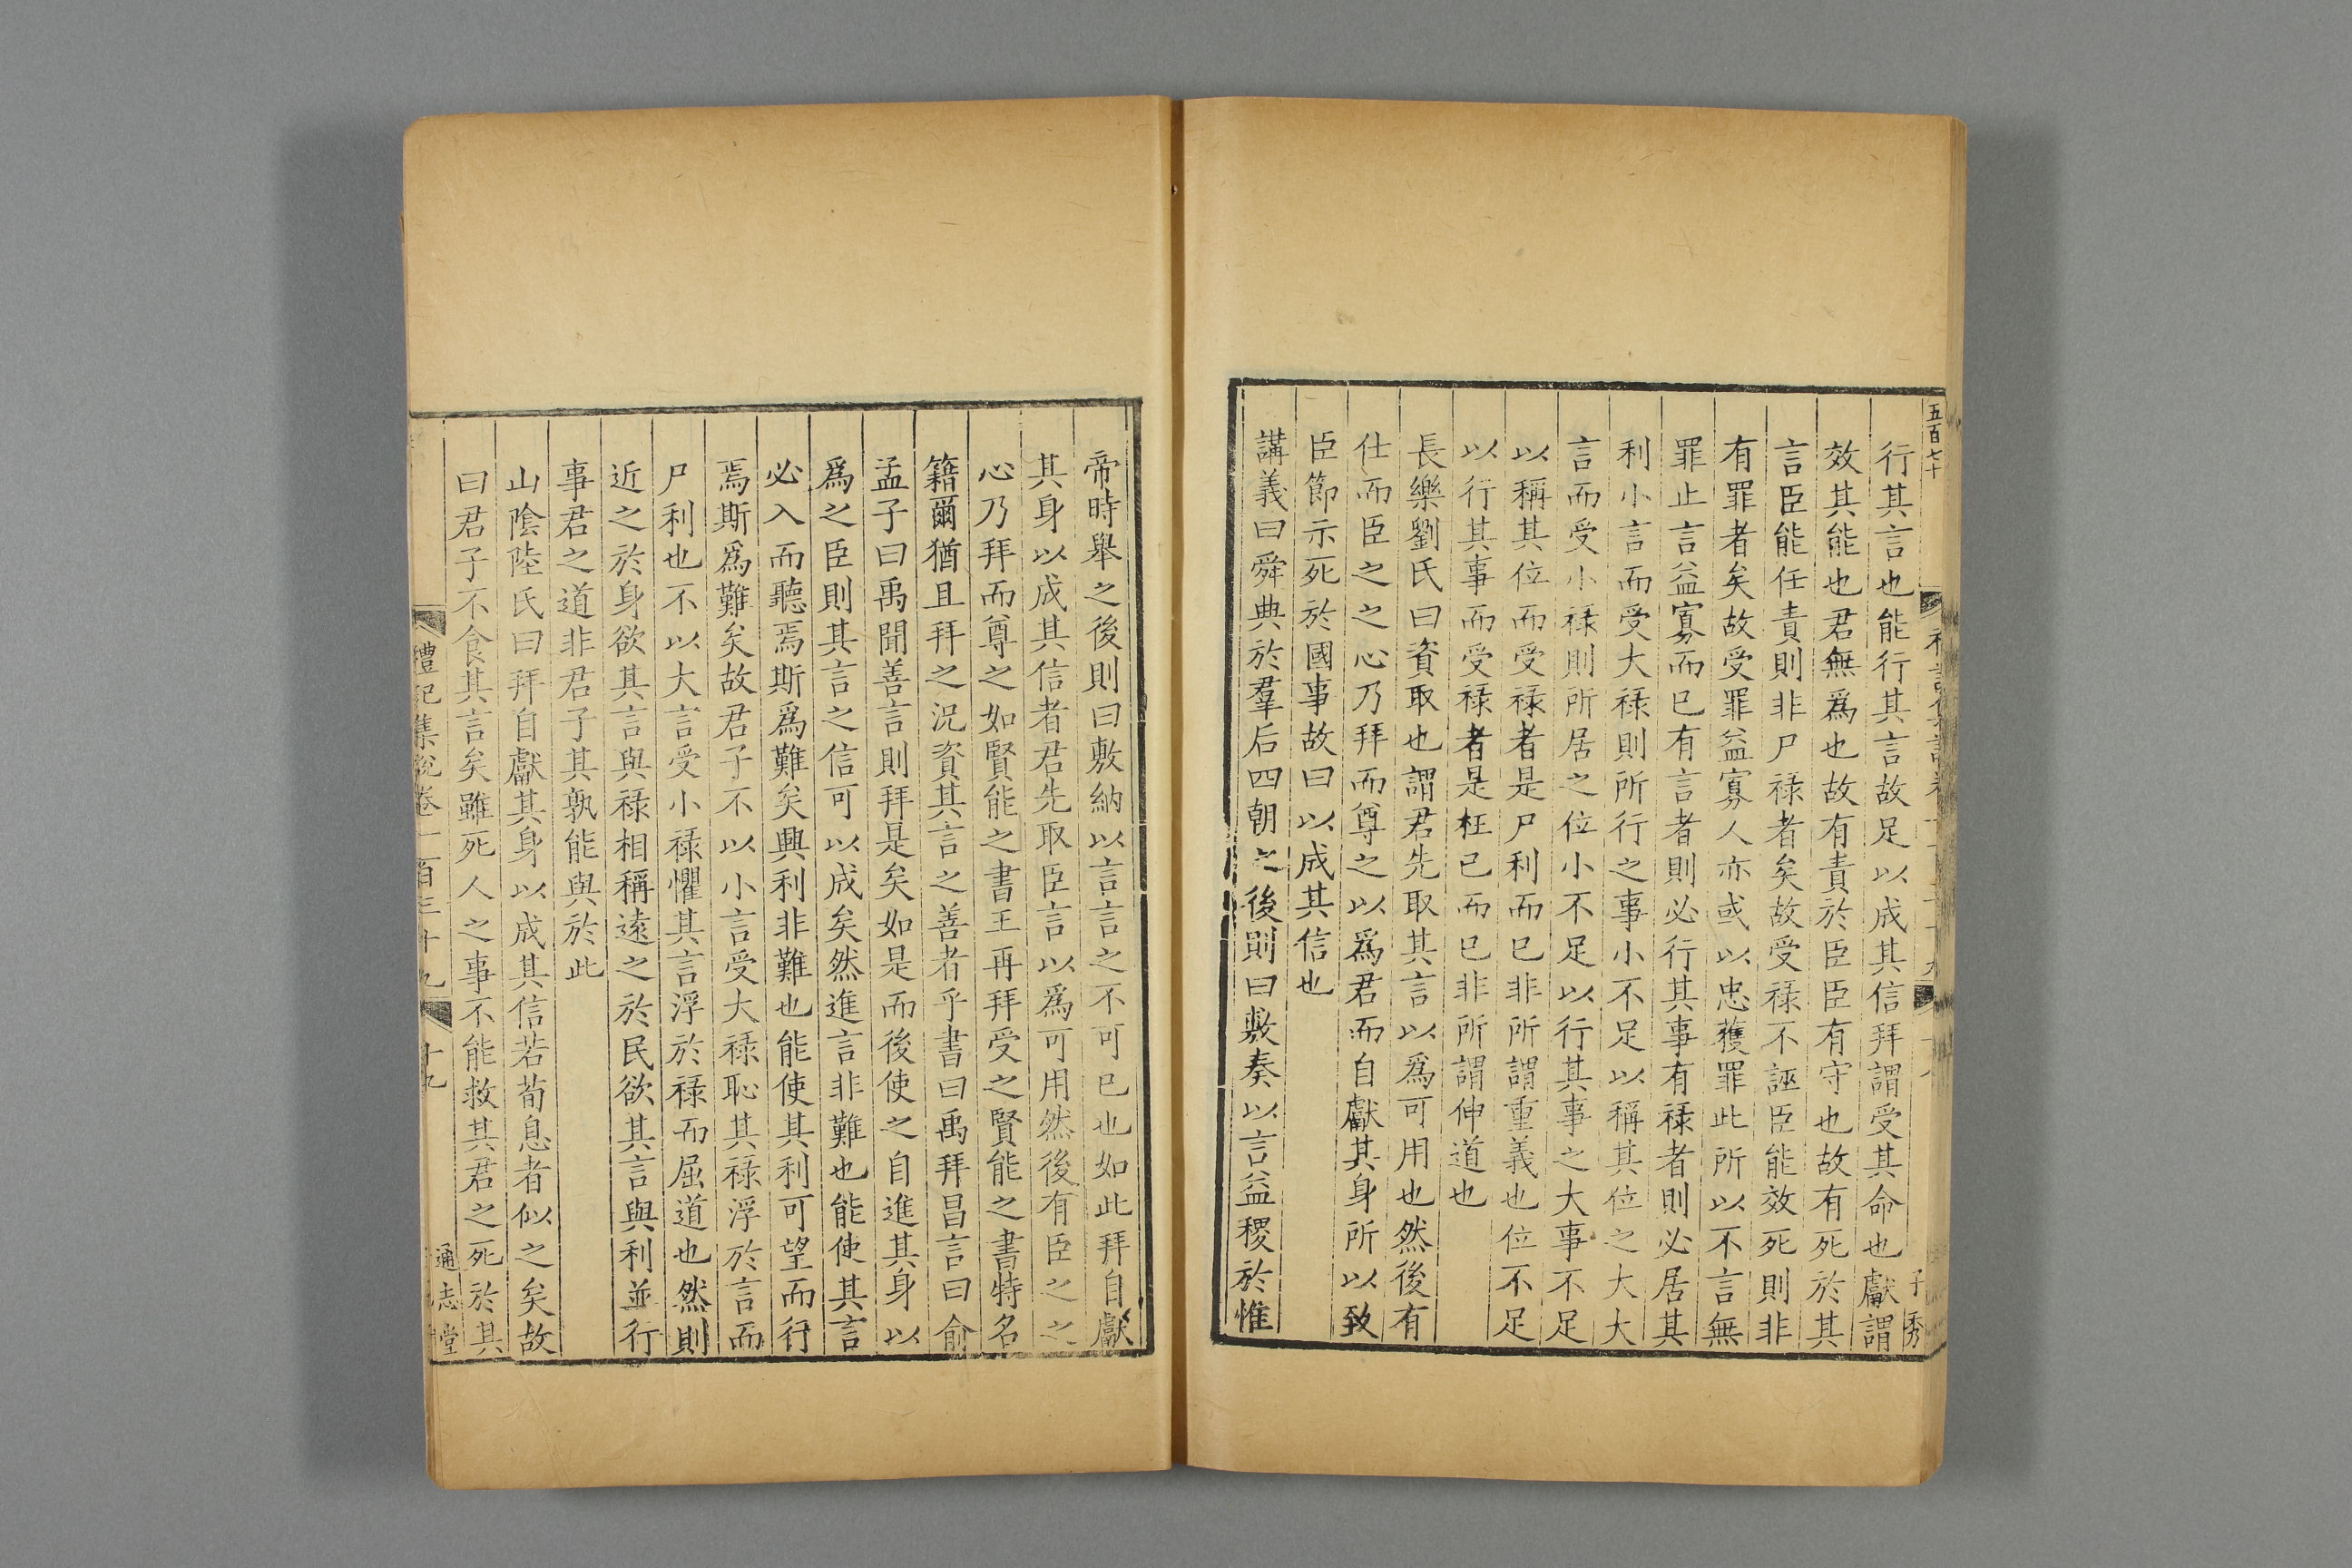 五百七十
子秀
行其言也能行其言故足以成其信拜謂受其命也獻謂
效其能也君無爲也故有責於臣臣有守也故有死於其
言臣能任責則非尸禄者矣故受禄不誣臣能效死則非
有罪者矣故受罪益寡人亦或以忠獲罪此所以不言無
罪止言益寡而已有言者則必行其事有禄者則必居其
利小言而受大禄則所行之事小不足以稱其位之大大
言而受小禄則所居之位小不足以行其事之大事不足
以稱其位而受禄者是尸利而已非所謂重義也位不足
以行其事而受禄者是枉已而已非所謂伸道也
長樂劉氏曰資取也謂君先取其言以爲可用也然後有
仕而臣之之心乃拜而尊之以爲君而自獻其身所以致
臣節示死於國事故曰以成其信也
講義曰舜典於羣后四朝之後則曰敷奏以言益稷於惟
帝時舉之後則曰敷納以言言之不可已也如此拜自獻
其身以成其信者君先取臣言以爲可用然後有臣之之
心乃拜而尊之如賢能之書王再拜受之賢能之書特名
籍爾猶且拜之況資其言之善者乎書曰禹拜昌言曰俞
孟子曰禹聞善言則拜是矣如是而後使之自進其身以
爲之臣則其言之信可以成矣然進言非難也能使其言
必入而聽焉斯爲難矣興利非難也能使其利可望而行
焉斯爲難矣故君子不以小言受大禄恥其禄浮於言而
尸利也不以大言受小禄懼其言浮於禄而屈道也然則
近之於身欲其言與禄相稱遠之於民欲其言與利並行
事君之道非君子其孰能與於此
山陰陸氏曰拜自獻其身以成其信若荀息者似之矣故
曰君子不食其言矣雖死人之事不能救其君之死於其
禮記集說卷一百三十九 十九
通志堂